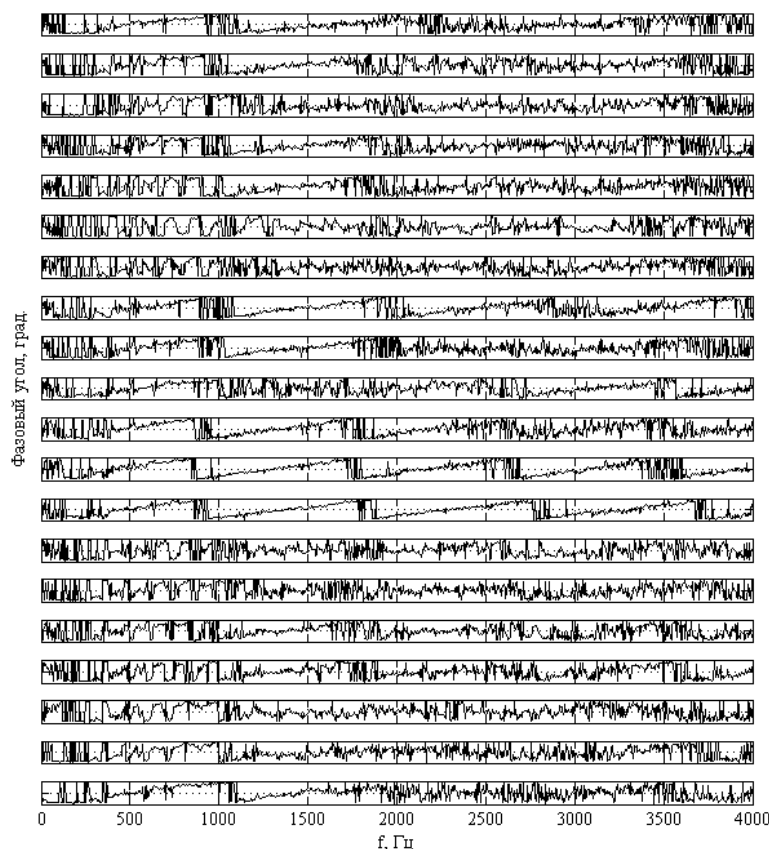 Фазовый угол, град.
0 500 1000 1500 2000 2500 3000 3500 4000
f, Гц